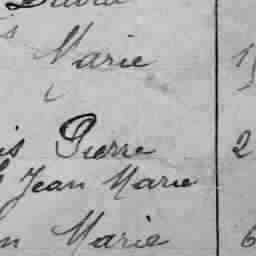 David
Marie 1
is Pierre 2
Jean Marie
n Marie 6